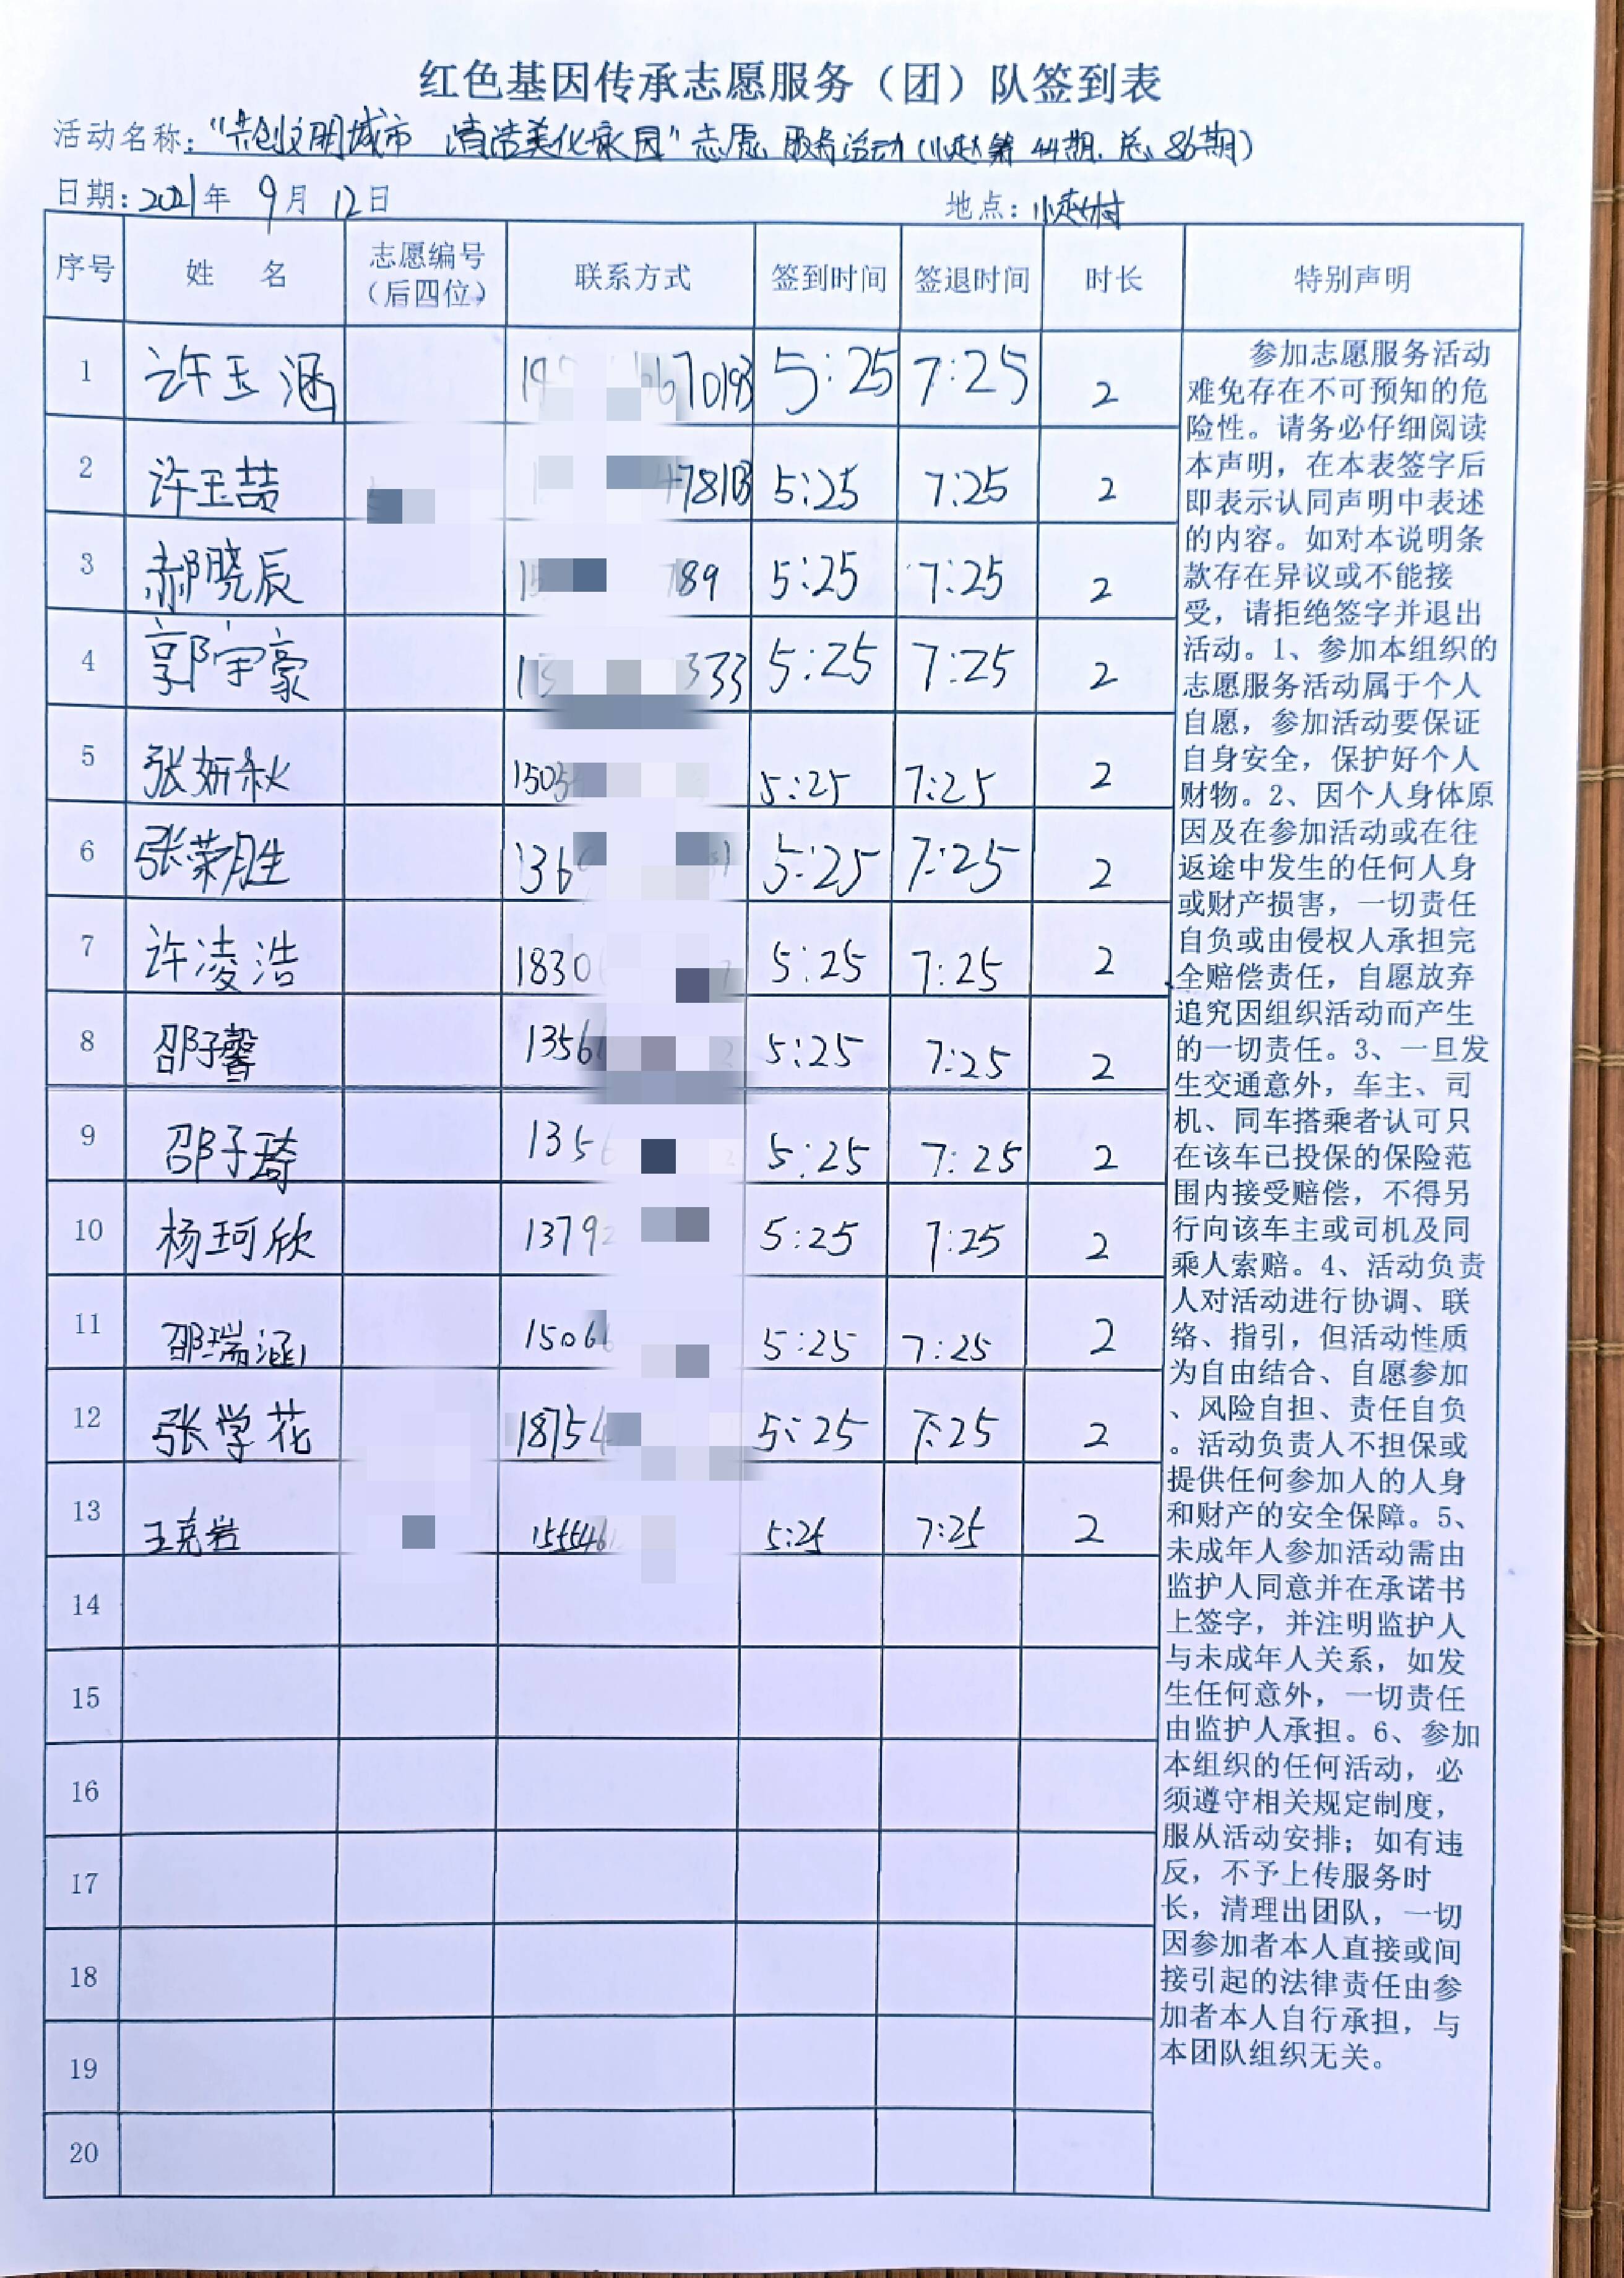 红色基因传承志愿服务（团）队签到表
活动名称："共创文明城市 清洁美化家园"志愿服务活动(小赵第44期.总86期)
日期：2021年 9月 12日 地点：小赵村
序号 姓 名 志愿编号（后四位） 联系方式 签到时间 签退时间 时长 特别声明
1 许玉涵 5:25 7:25 2
2 许玉喆 5:25 7:25 2
3 郝晓辰 789 5:25 7:25 2
4 郭宇豪 333 5:25 7:25 2
5 张妍秋 1505 5:25 7:25 2
6 张荣胜 136 5:25 7:25 2
7 许凌浩 1830 5:25 7:25 2
8 邵子馨 1356 5:25 7:25 2
9 邵子琦 135 5:25 7:25 2
10 杨珂欣 1379 5:25 7:25 2
11 邵瑞涵 1506 5:25 7:25 2
12 张学花 18754 5:25 7:25 2
13 王克岩 5:25 7:25 2
14
15
16
17
18
19
20
参加志愿服务活动
难免存在不可预知的危
险性。请务必仔细阅读
本声明，在本表签字后
即表示认同声明中表述
的内容。如对本说明条
款存在异议或不能接
受，请拒绝签字并退出
活动。1、参加本组织的
志愿服务活动属于个人
自愿，参加活动要保证
自身安全，保护好个人
财物。2、因个人身体原
因及在参加活动或在往
返途中发生的任何人身
或财产损害，一切责任
自负或由侵权人承担完
全赔偿责任，自愿放弃
追究因组织活动而产生
的一切责任。3、一旦发
生交通意外，车主、司
机、同车搭乘者认可只
在该车已投保的保险范
围内接受赔偿，不得另
行向该车主或司机及同
乘人索赔。4、活动负责
人对活动进行协调、联
络、指引，但活动性质
为自由结合、自愿参加
、风险自担、责任自负
。活动负责人不担保或
提供任何参加人的人身
和财产的安全保障。5、
未成年人参加活动需由
监护人同意并在承诺书
上签字，并注明监护人
与未成年人关系，如发
生任何意外，一切责任
由监护人承担。6、参加
本组织的任何活动，必
须遵守相关规定制度，
服从活动安排；如有违
反，不予上传服务时
长，清理出团队，一切
因参加者本人直接或间
接引起的法律责任由参
加者本人自行承担，与
本团队组织无关。